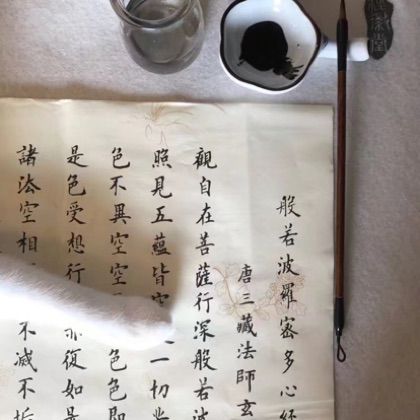 般若波羅密多心經
唐三藏法師玄
觀自在菩薩行深般若波
照見五蘊皆空一切
色不異空空色色即
是色受想行亦復如是
諸法空相不滅不垢